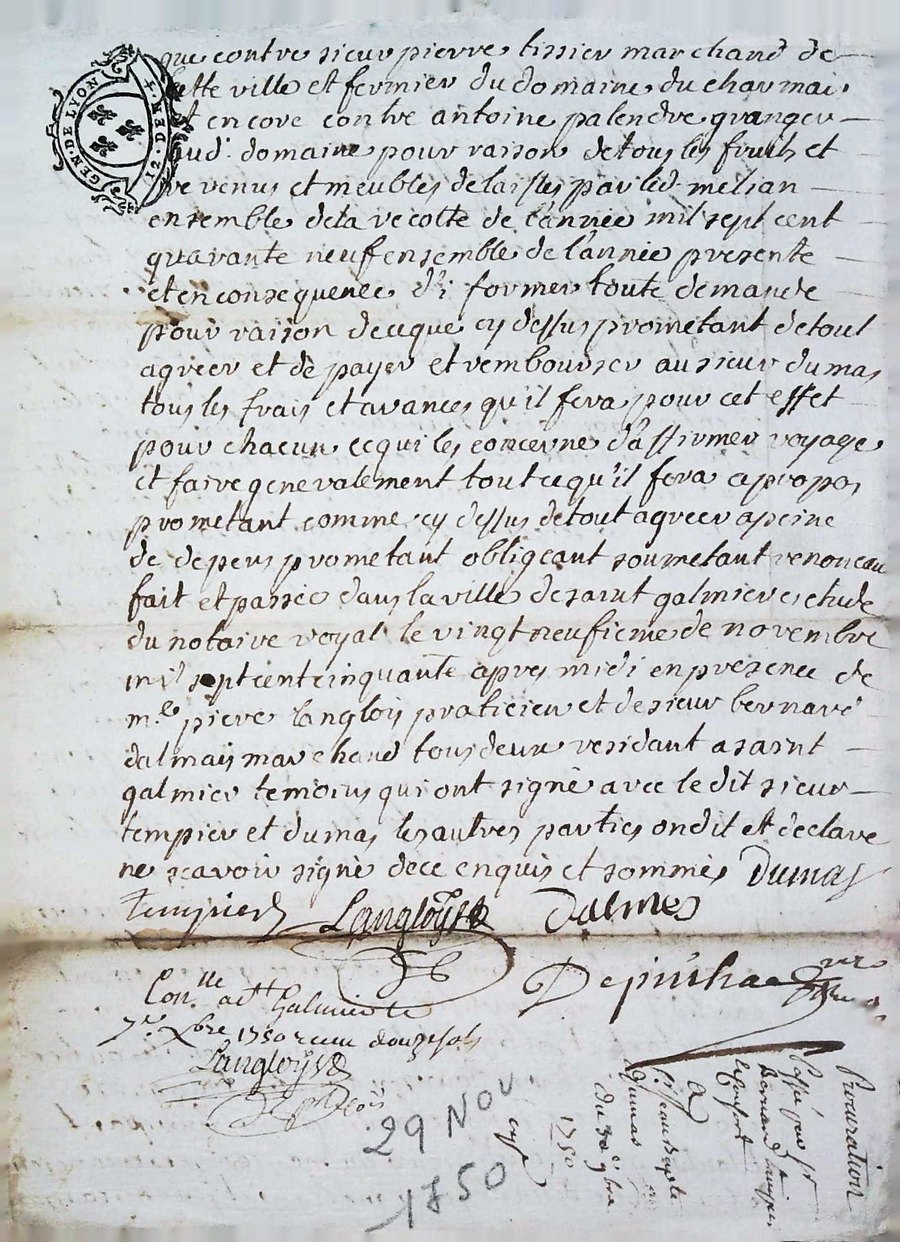 GEN. DE LYON
2. DEN. 4
que contre sieur pierre tissier marchand de
cette ville et fermier du domaine du charmai
et encore contre antoine palendre granger
aud. domaine pour raison de tous les fruits et
revenus et meubles delaisses par led. melian
ensemble dela recolte de l'année mil sept cent
quarante neuf ensemble de l'année presente
et en consequence d'i former toute demande
pour raison de ce que cy dessus prometant de tout
agreer et de payer et rembourser au sieur dumas
tous les frais et avances qu'il fera pour cet effet
pour chacun ce qui les concerne d'affirmer voyage
et faire generalement tout ce qu'il fera a propos
prometant comme cy dessus de tout agreer a peine
de depens prometant obligeant soumetant renoncan
fait et passée dans la ville de saint galmier etude
du notaire royal le vingt neufieme de novembre
mil sept cent cinquante apres midi en presence de
me. piere langlois praticien et de sieur bernard
dalmais marchand tous deux residant a saint
galmier temoins qui ont signé avec le dit sieur
tempier et dumas les autres parties on dit et declare
ne scavoir signé de ce enquis et sommés Dumas
tempier Langloys Dalmes
Con.lle a st Galmier le
7e Xbre 1750 receu douze sols
Langloys
Procuration
passé par sr
a
sr jean bapte
Dumas
du 29 9bre
1750
29 Nov
1750